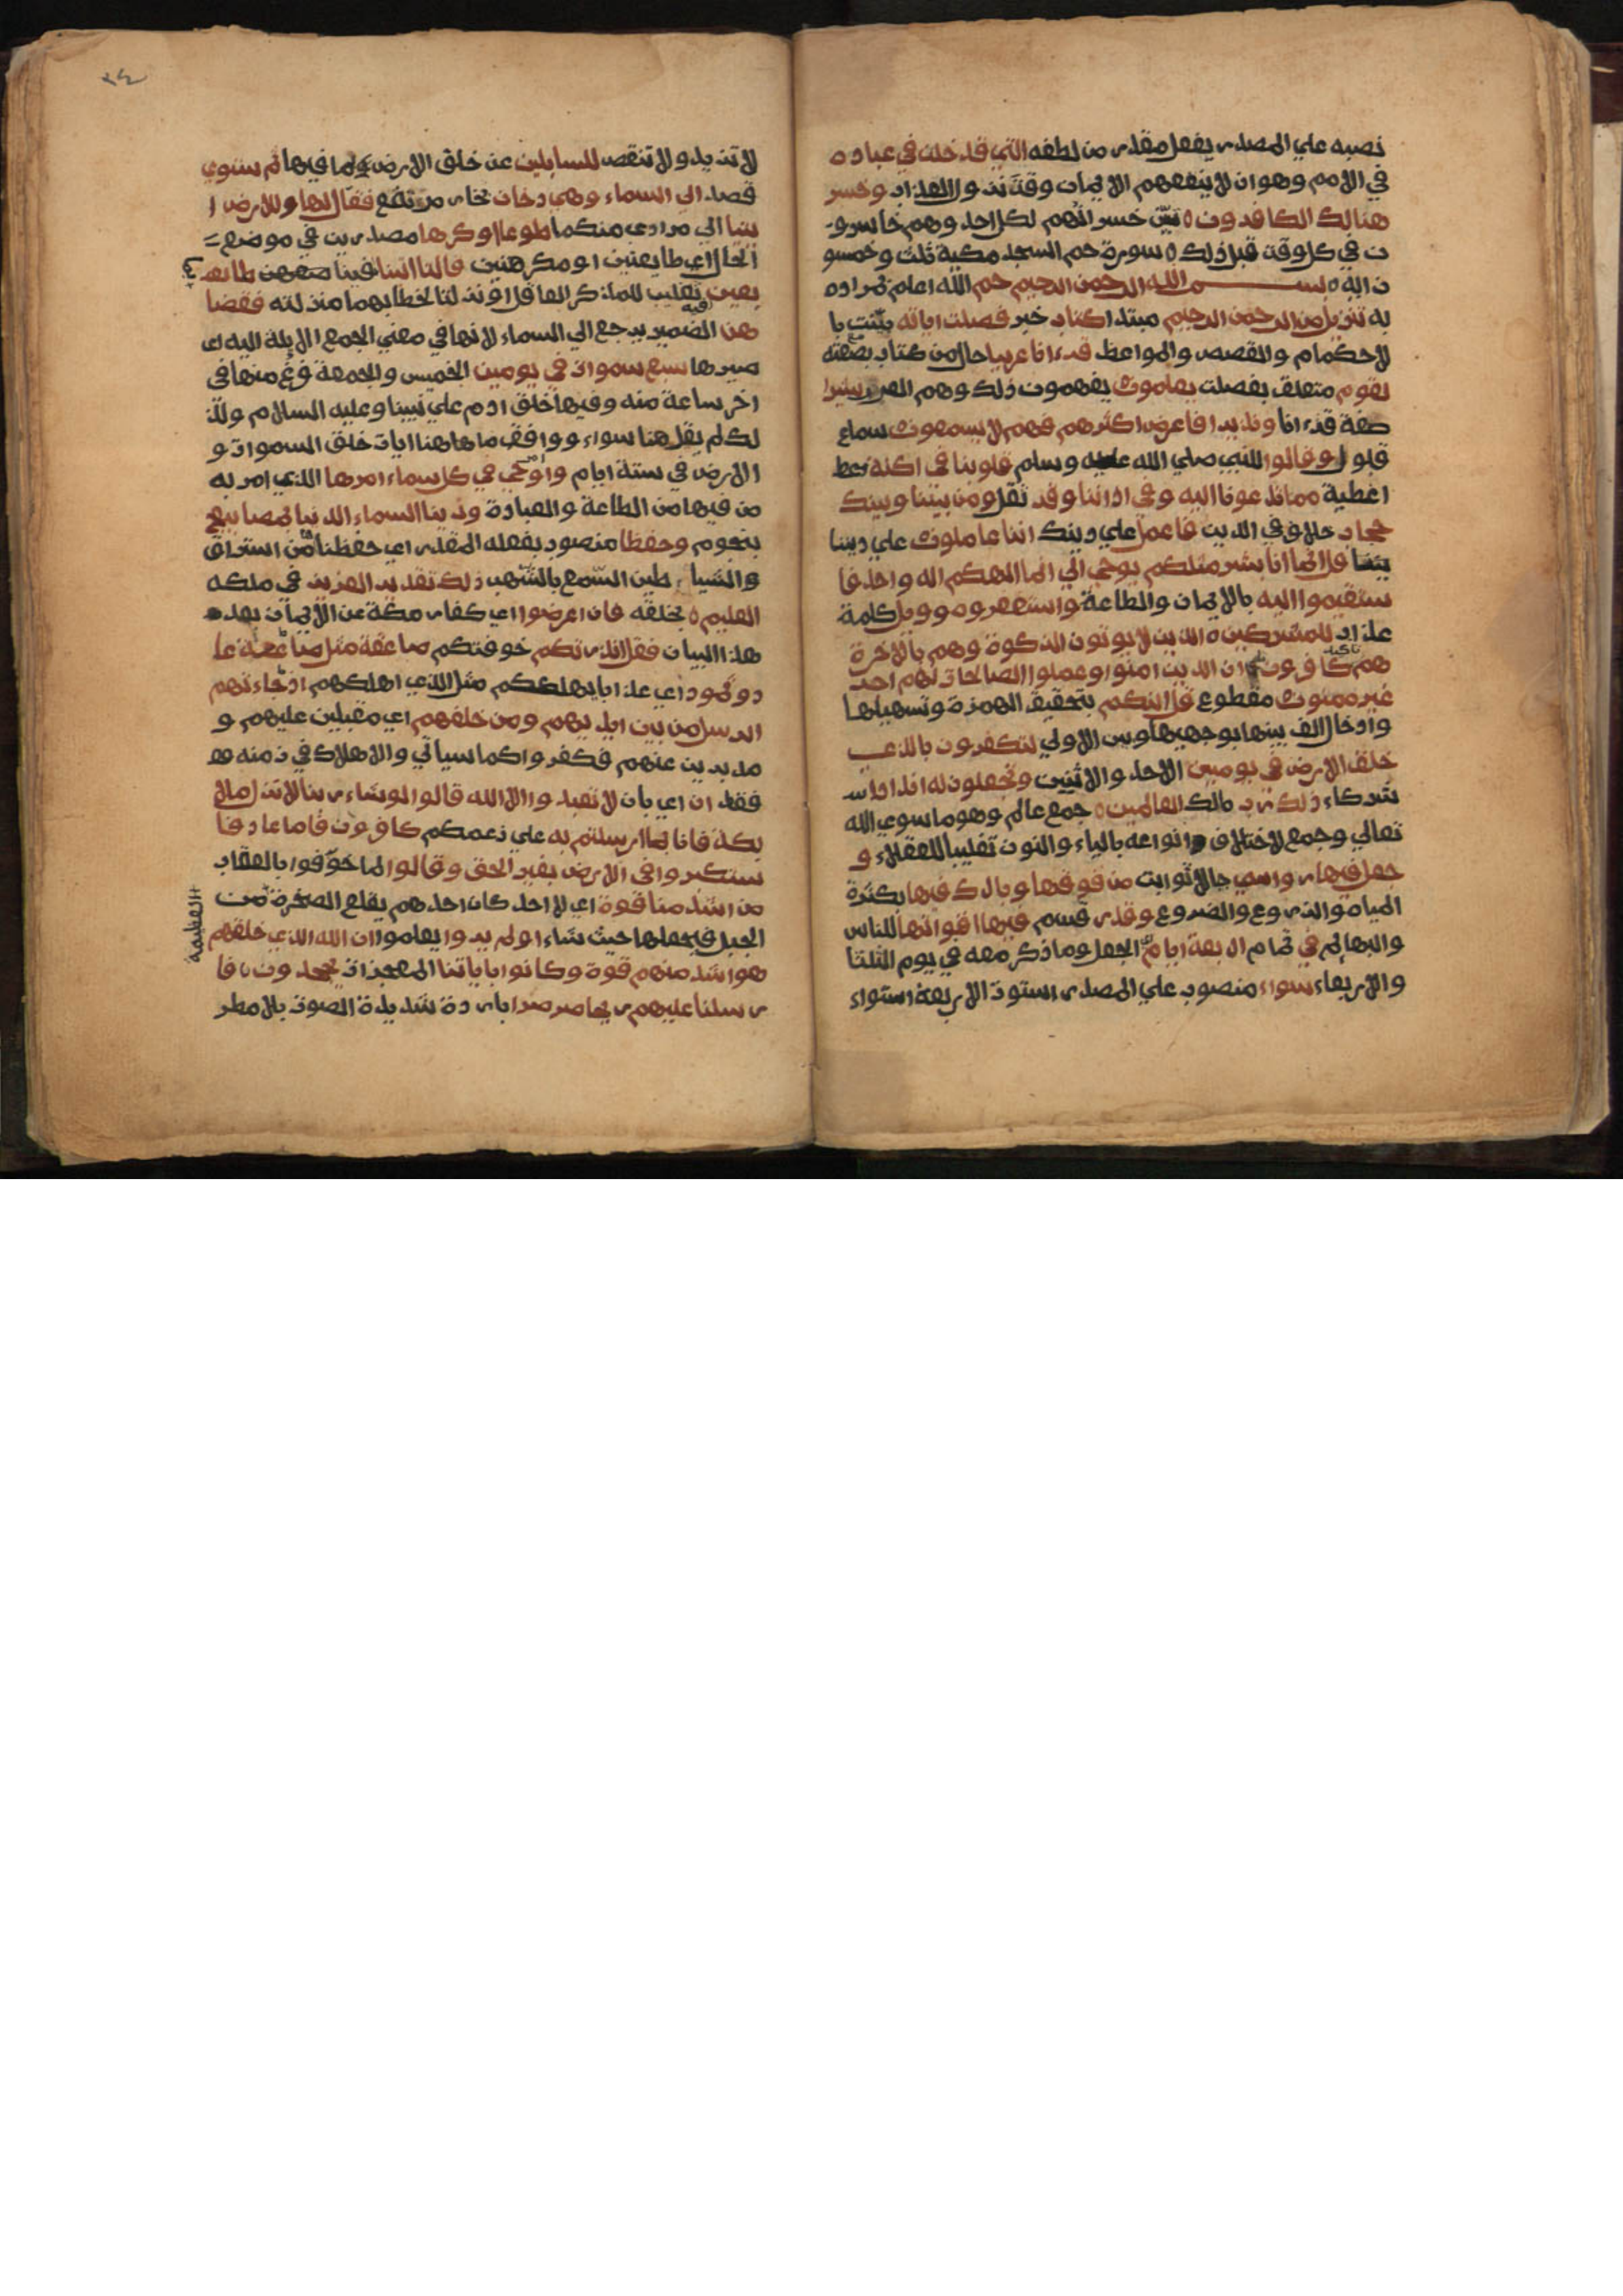 نصبه علي المصدر بفعل مقدر من لفظه التي قد خلت في عباده
في الامم وهو ان لا ينفعهم الايمان وقت نزول العذاب وخسر
هنالك الكافرون تبين خسرانهم لكل احد وهم خاسرو
ن في كل وقت قبل ذلك سورة حم السجد مكية ثلث وخمسو
ن اية بسم الله الرحمن الرحيم حم الله اعلم بمراده
به تنزيل من الرحمن الرحيم مبتدا كتاب خبر فصلت اياته بينت با
لاحكام والقصص والمواعظ قرءانا عربيا حال من كتاب بصفته
لقوم متعلق بفصلت يعلمون يفهمون ذلك وهم العرب بشيرا
صفة قرءانا ونذيرا فاعرض اكثرهم فهم لا يسمعون سماع
قبول وقالوا للنبي صلي الله عليه وسلم قلوبنا في اكنة
اغطية مما تدعونا اليه وفي اذاننا وقر ثقل ومن بيننا وبينك
حجاب خلاف في الدين فاعمل علي دينك اننا عاملون علي ديننا
قل انما انا بشر مثلكم يوحي الي انما الهكم اله واحد فا
ستقيموا اليه بالايمان والطاعة واستغفروه وويل كلمة
عذاب للمشركين الذين لا يوتون الزكوة وهم بالاخرة
هم تاكيد كافرون ان الذين امنوا وعملوا الصالحات لهم اجر
غير ممنون مقطوع قل ائنكم بتحقيق الهمزة وتسهيلها
وادخال الف بينها بوجهيها وبين الاولي لتكفرون بالذي
خلق الارض في يومين الاحد والاثنين وتجعلون له اندادا
شركاء ذلك رب مالك العالمين جمع عالم وهو ما سوي الله
تعالي وجمع لاختلاف انواعه بالياء والنون تغليبا للعقلاء و
جعل فيها رواسي جبالا ثوابت من فوقها وبارك فيها بكثرة
المياه والزروع والضروع وقدر قسم فيها اقواتها للناس
والبهائم في تمام اربعة ايام الجعل وما ذكر معه في يوم الثلثا
والاربعاء سواء منصوب علي المصدر استوت الاربعة استواء
٢٤
لا تزيد ولا تنقص للسايلين عن خلق الارض وما فيها ثم استوي
قصد الي السماء وهي دخان بخار مرتفع فقال لها وللارض ا
ئتيا الي مرادي منكما طوعا او كرها مصدرين في موضع
الحال اي طايعتين او مكرهتين قالتا اتينا فينا طائعـ
يعين تغليب للمذكر العاقل او نزلتا لخطابهما منزلته فقضا
هن الضمير يرجع الي السماء لانها في معني الجمع الايلة اليه اي
صيرها سبع سموات في يومين الخميس والجمعة فرغ منها في
اخر ساعة منه وفيها خلق ادم علي نبينا وعليه السلام ولذ
لك لم يقل هنا سواء ووافق ما هاهنا ايات خلق السموات و
الارض في ستة ايام واوحي في كل سماء امرها الذي امر به
من فيها من الطاعة والعبادة وزينا السماء الدنيا بمصابيح
بنجوم وحفظا منصوب بفعله المقدر اي حفظناها من استراق
والشياطين السمع بالشهب ذلك تقدير العزيز في ملكه
العليم بخلقه فان اعرضوا اي كفار مكة عن الايمان بعد
هذا البيان فقل انذرتكم خوفتكم صاعقة مثل صاعقة عا
د وثمود اي عذابا يهلككم مثل الذي اهلكهم اذ جاءتهم
الرسل من بين ايديهم ومن خلفهم اي مقبلين عليهم و
مدبرين عنهم فكفروا كما سياتي والاهلاك في زمنه
فقط ان اي بان لا تعبدوا الا الله قالوا لو شاء ربنا لانزل ملا
يكة فانا بما ارسلتم به علي زعمكم كافرون فاما عاد فا
ستكبروا في الارض بغير الحق وقالوا لما خوفوا بالعقاب
من اشد منا قوة اي لا احد كان احدهم يقلع الصخرة من
العظيمة
الجبل فيجعلها حيث شاء اولم يروا يعلموا ان الله الذي خلقهم
هو اشد منهم قوة وكانوا باياتنا المعجزات يجحدون فا
رسلنا عليهم ريحا صرصرا باردة شديدة الصوت بلا مطر